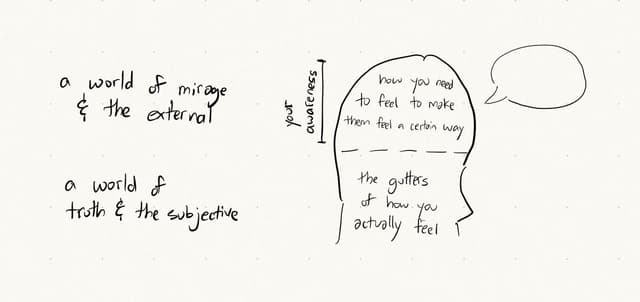 a world of mirage
& the external
your
awareness
how you need
to feel to make
them feel a certain way
a world of
truth & the subjective
the gutters
of how you
actually feel